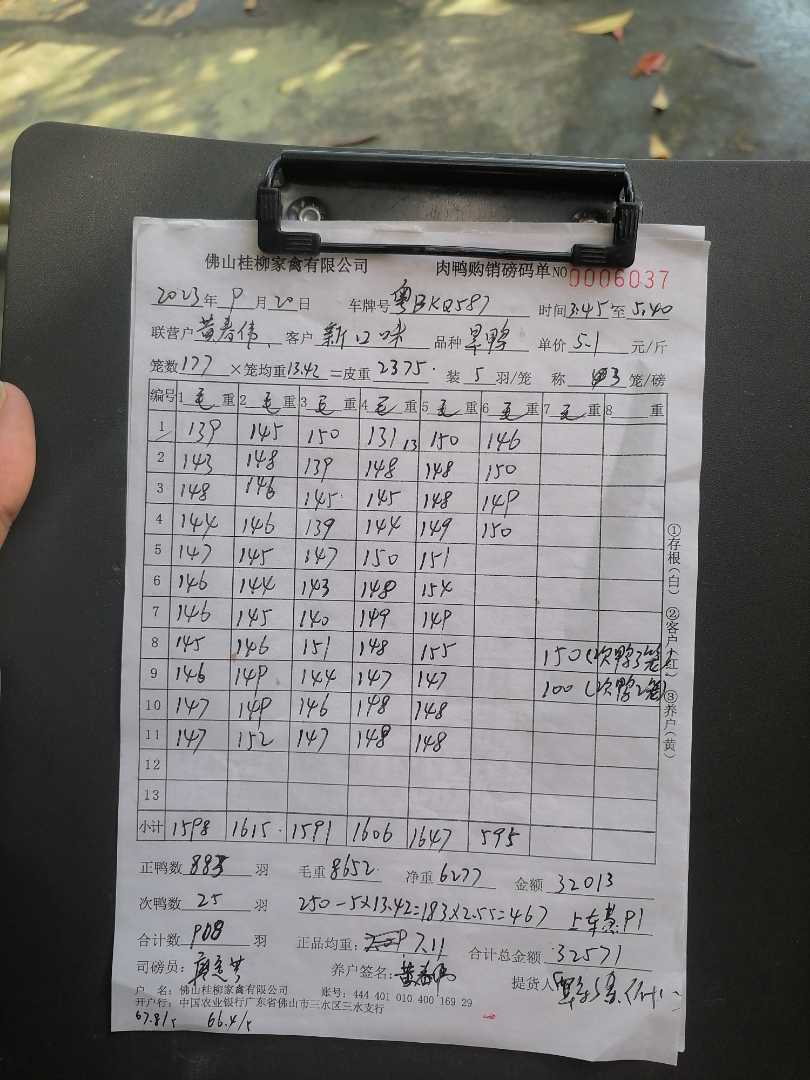 佛山桂柳家禽有限公司 肉鸭购销磅码单 NO 0006037
2023年 9月 20日 车牌号 粤BKQ587 时间 3.45 至 5.40
联营户 黄春伟 、客户 新口味 品种 旱鸭 单价 5.1 元/斤
笼数 177 ×笼均重 13.42 =皮重 2375 装 5 羽/笼 称 3 笼/磅
编号 1 毛 重 2 毛 重 3 毛 重 4 毛 重 5 毛 重 6 毛 重 7 毛 重 8 重
1 139 145 150 131 13 150 146
2 143 148 139 148 148 150
3 148 146 145 145 148 149
4 144 146 139 144 149 150
5 147 145 147 150 151
6 146 144 143 148 154
7 146 145 140 149 149
8 145 146 151 148 155 150(次鸭3笼)
9 146 149 144 147 147 100(次鸭2笼)
10 147 149 146 148 148
11 147 152 147 148 148
12
13
小计 1598 1615 1591 1606 1647 595
①存根(白) ②客户(红) ③养户(黄)
正鸭数 883 羽 毛重 8652 净重 6277 金额 32013
次鸭数 25 羽 250-5×13.42=183×2.55=467 上车费 91
合计数 908 羽 正品均重: 7.11 合计总金额 32571
司磅员: 养户签名: 黄春伟 提货人
户 名: 佛山桂柳家禽有限公司 账号: 444 401 010 400 169 29
开户行: 中国农业银行广东省佛山市三水区三水支行
67.8/5 66.4/5